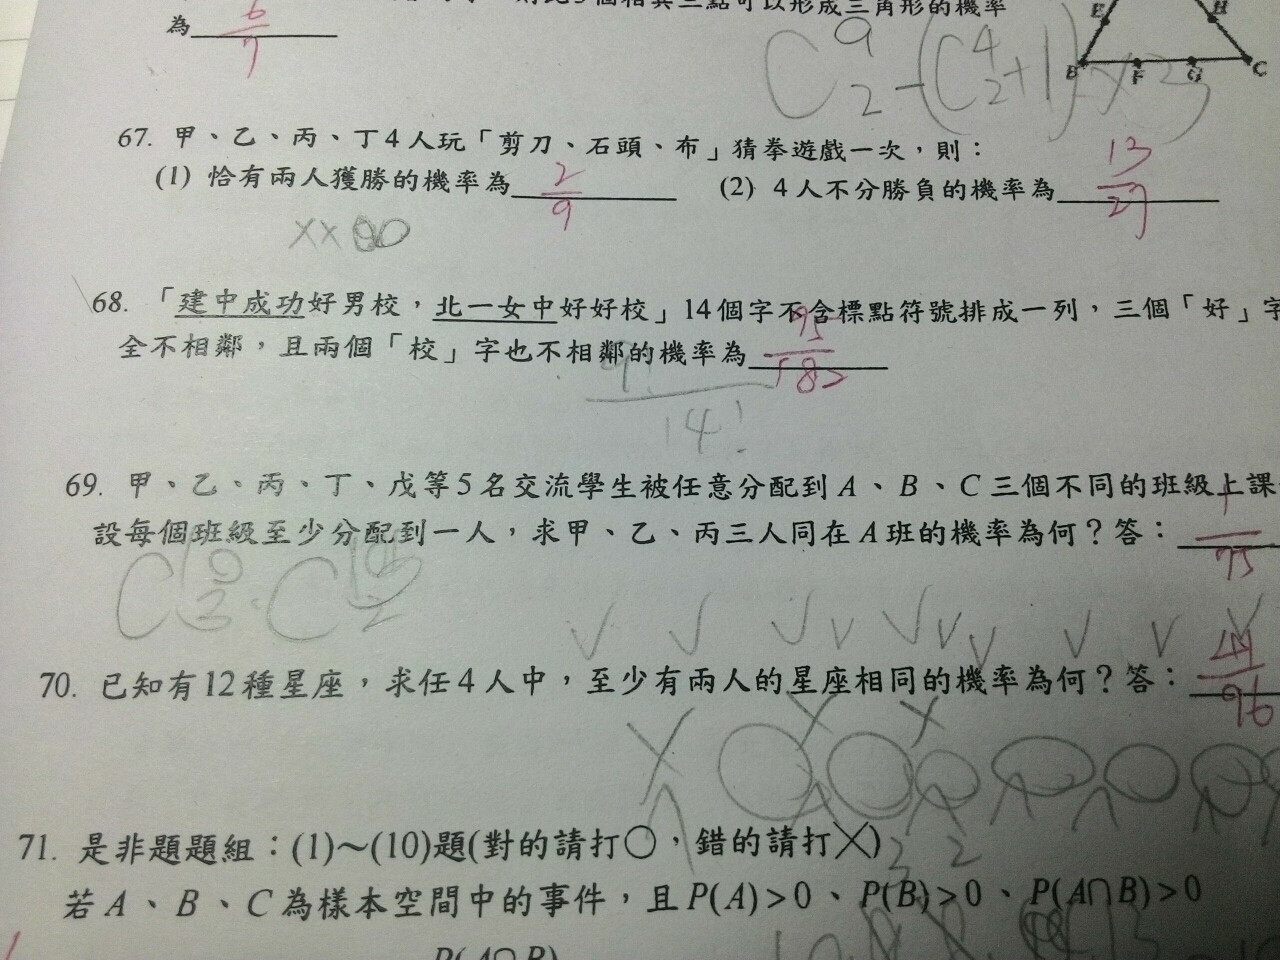 三點可以形成三角形的機率
為 6/7
C 9 2 - (C 4 2 + 1)
E H
B F G C
67. 甲、乙、丙、丁4人玩「剪刀、石頭、布」猜拳遊戲一次，則：
(1) 恰有兩人獲勝的機率為 2/9 (2) 4人不分勝負的機率為 13/27
68. 「建中成功好男校，北一女中好好校」14個字不含標點符號排成一列，三個「好」字
全不相鄰，且兩個「校」字也不相鄰的機率為 95/182
14!
69. 甲、乙、丙、丁、戊等5名交流學生被任意分配到A、B、C三個不同的班級上課
設每個班級至少分配到一人，求甲、乙、丙三人同在A班的機率為何？答： 1/75
70. 已知有12種星座，求任4人中，至少有兩人的星座相同的機率為何？答： 41/96
71. 是非題題組：(1)～(10)題(對的請打○，錯的請打╳)
若A、B、C為樣本空間中的事件，且P(A)>0、P(B)>0、P(A∩B)>0
P(A∩B)